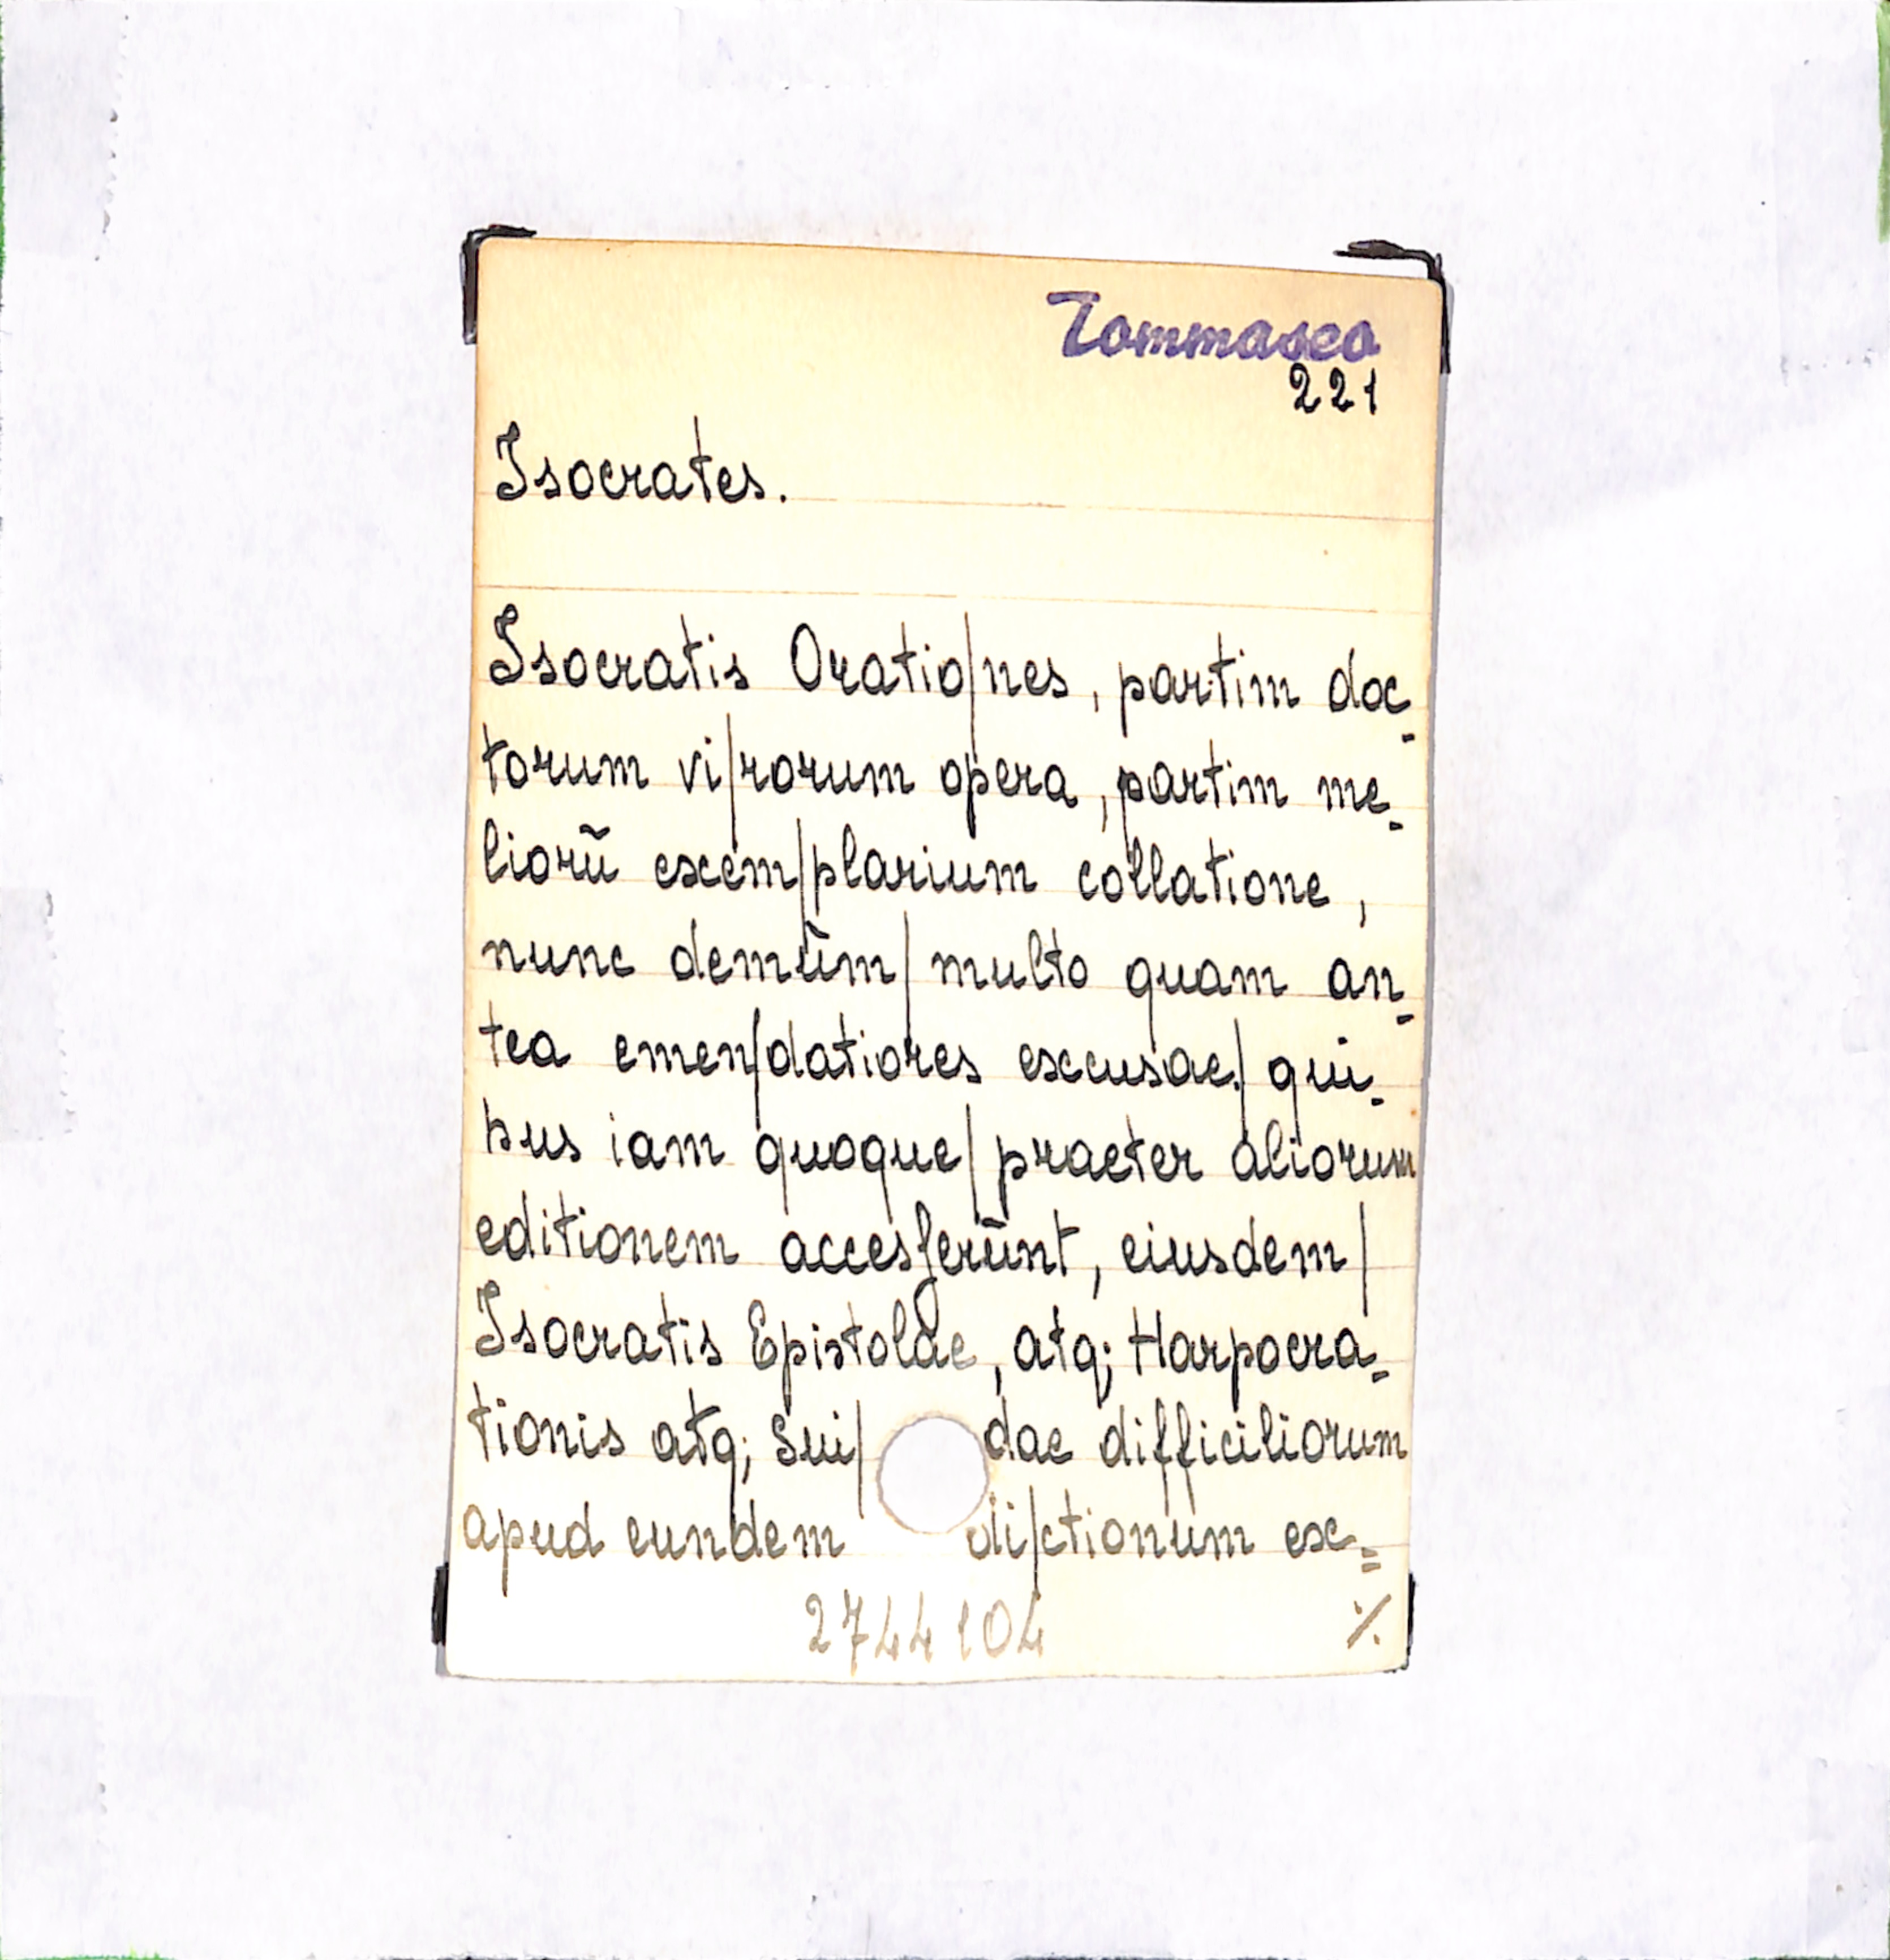 Tommaseo
221
Isocrates.
Isocratis Oratio/nes, partim doc=
torum vi/rorum opera, partim me=
liorū exem/plarium collatione,
nunc demūm/ multo quam an=
tea emen/datiores excusae./ qui=
bus iam quoque/ praeter aliorum
editionem accesſerūnt, eiusdem/
Isocratis Epistolae, atq; Harpocra=
tionis atq; Sui/dae difficiliorum
apud eundem di/ctionum ex=
2744104 ./.